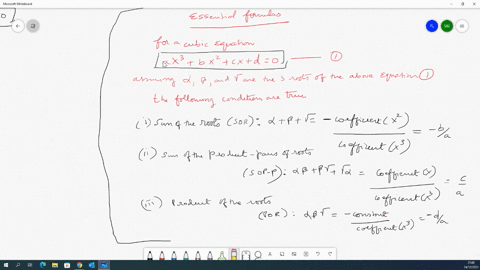 Microsoft Whiteboard
Essential formulas
for a cubic equation
ax³ + bx² + cx + d = 0 —— ①
assuming α, β, and γ are the 3 roots of the above Equation ①
the following conditions are true
(i) Sum of the roots (SOR): α + β + γ = -coefficient(x²) / coefficient(x³) = -b/a
(ii) Sum of the product-pairs of roots
(SOP-P): αβ + βγ + γα = coefficient(x) / coefficient(x³) = c/a
(iii) Product of the roots
(POR): αβγ = -constant / coefficient(x³) = -d/a